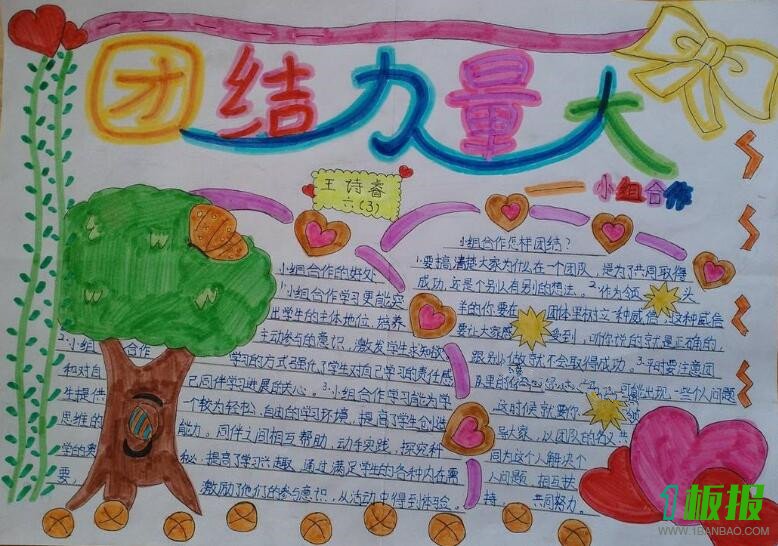 团结力量大
小组合作
王诗睿
六(3)
小组合作的好处
1.小组合作学习更能突
出学生的主体地位,培养
主动参与的意识,激发学生求知欲。
2.小组 合作
学习的方式强化了学生对自己学习的责任感
和对自
己同伴学习进展的关心。3.小组合作学习能为学
生提供
一个较为轻松、自由的学习环境,提高了学生创造
思维的
能力。同伴之间相互帮助,动手实践,探究科
学的奥
秘,提高了学习兴趣,通过满足学生的各种内在需
要,
激励了他们的参与意识,从活动中得到体验。
小组合作怎样团结?
1.要搞清楚大家为什么在一个团队,是为了共同取得
成功,还是个别人有别的想法。2.作为领 头
羊的你,要在 团体里树立一种威信,这种威信
要让大家感 受到,听你说的就是正确的,
跟别人做就不会取得成功。3.平时要注意团
队里的 可能出现一些个人问题
这时候就要你
导大家,以团队的名义共
同为这个人解决个
人问题,相互扶
持, 共同努力。
1板报
WWW.1BANBAO.COM